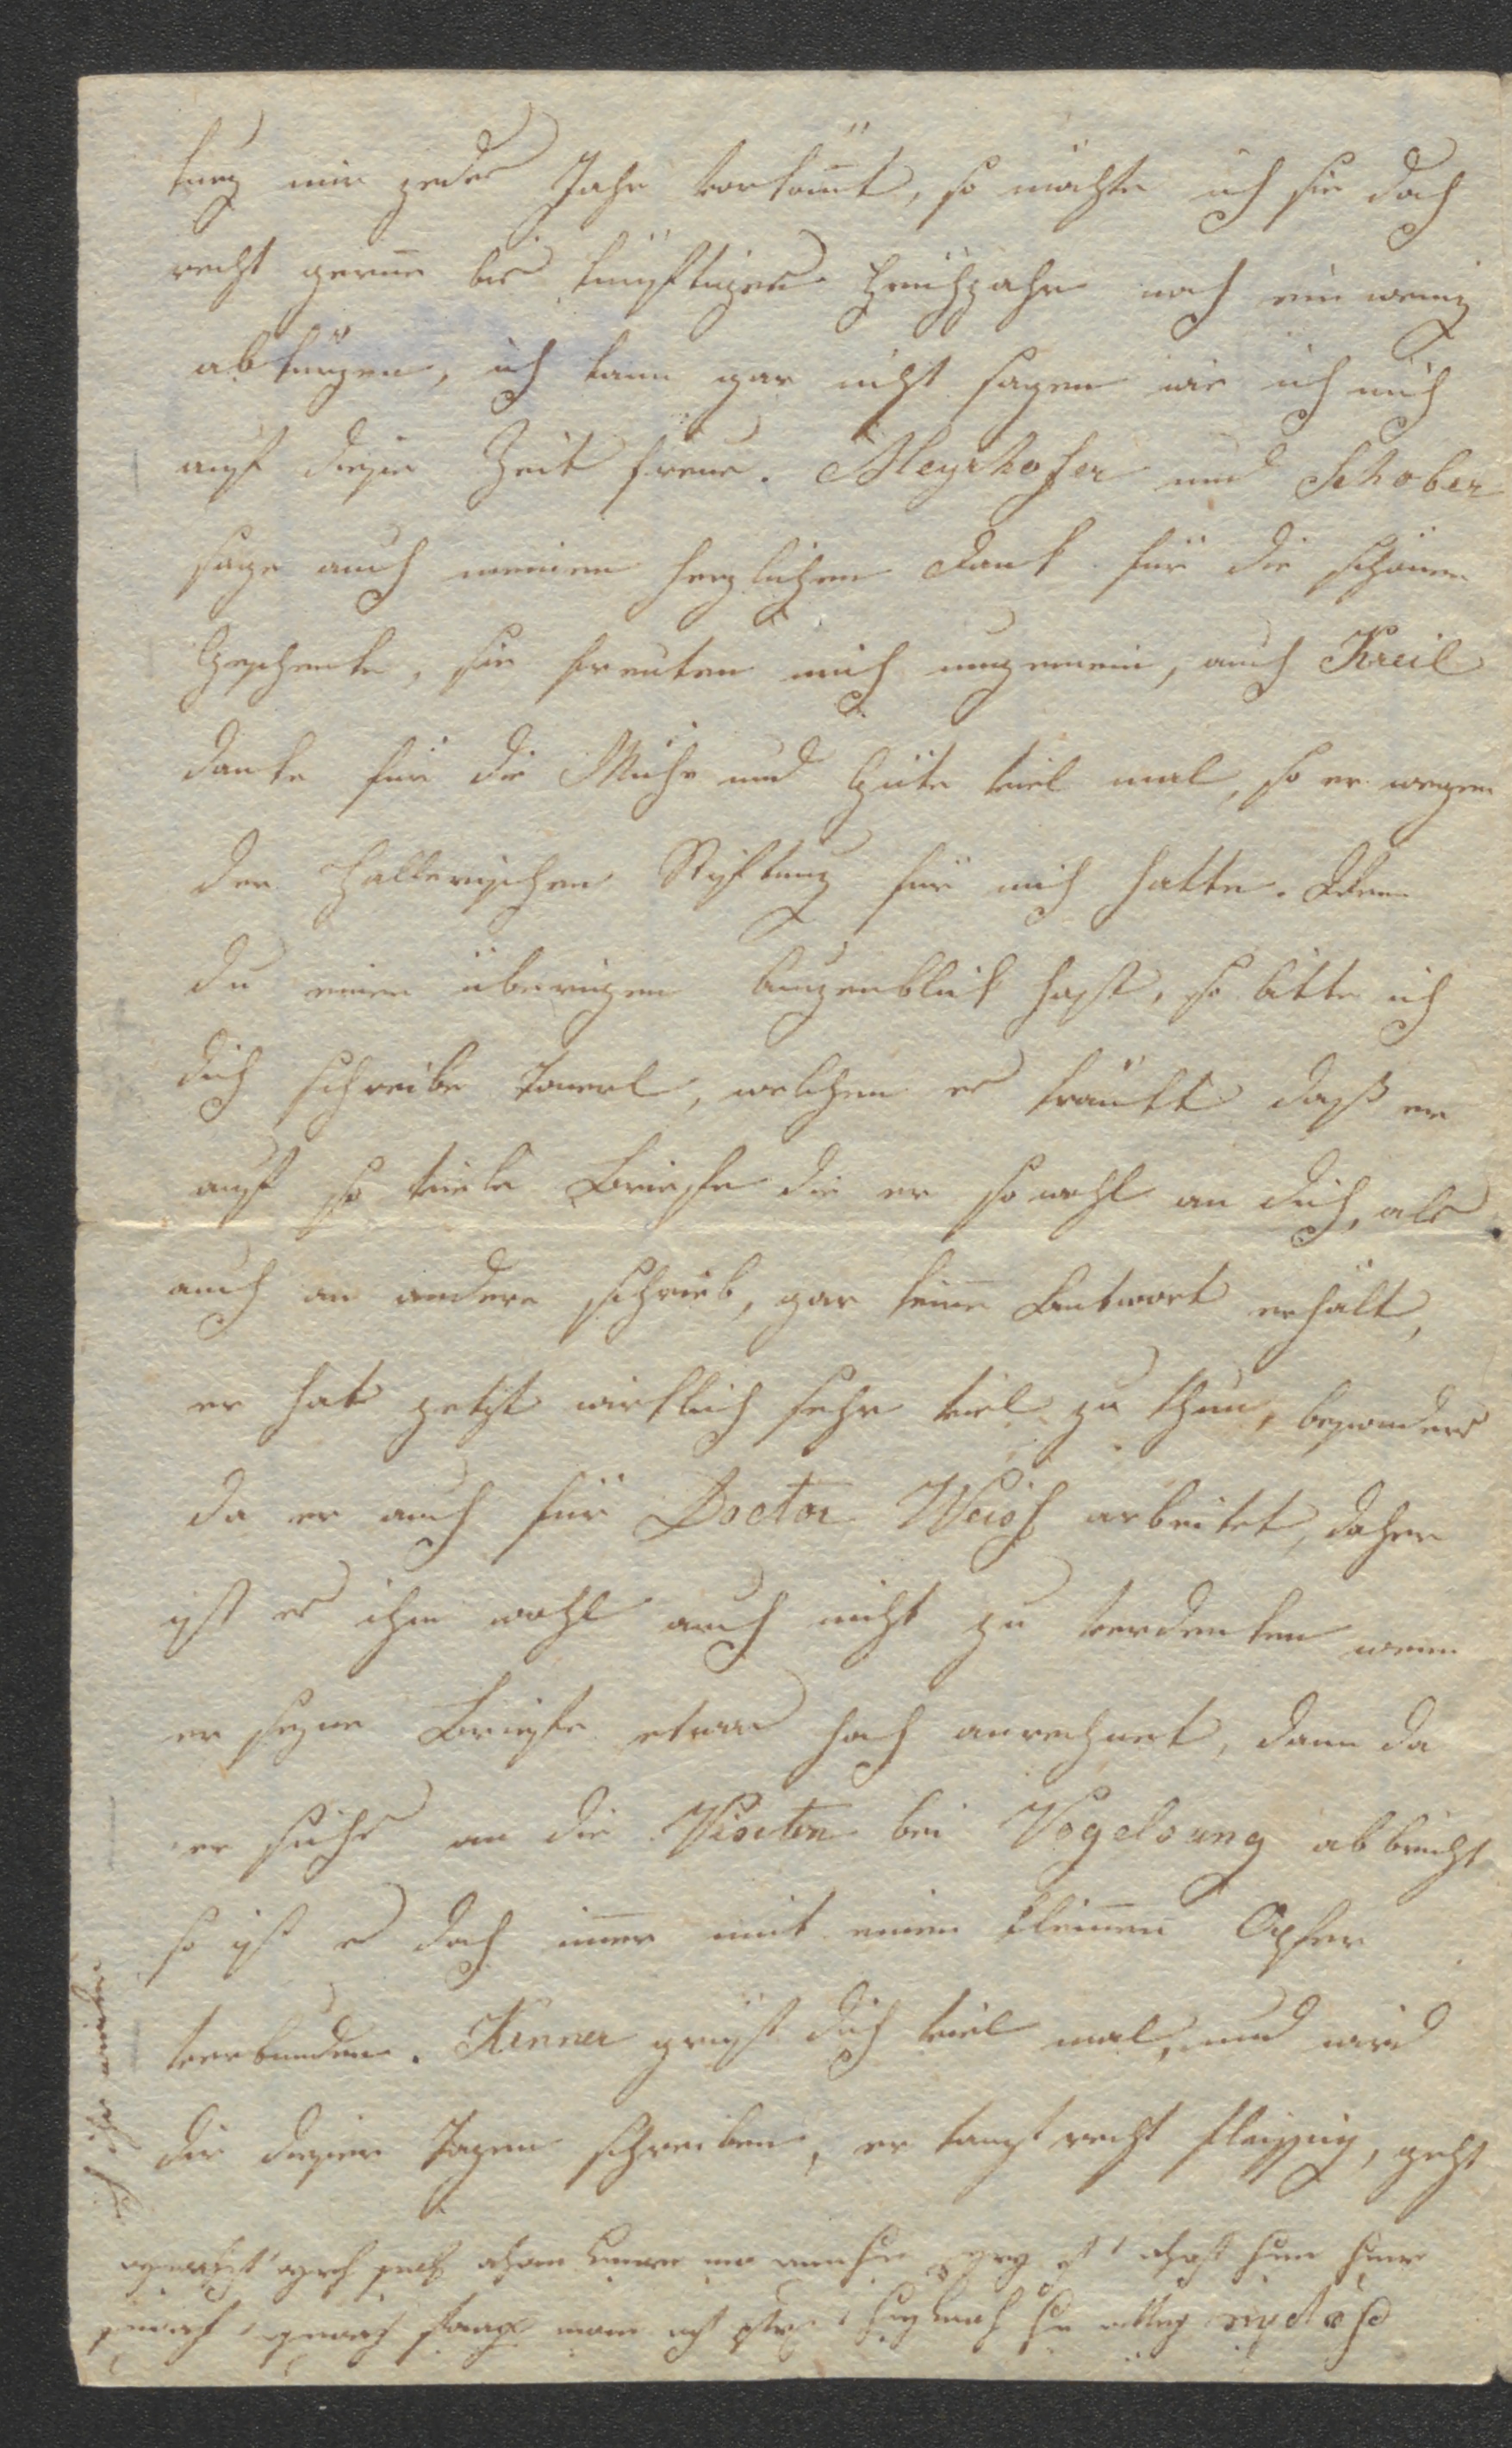 kurz mir jedes Jahr vorkömt, so möchte ich sie doch
recht gerne bis künftiges Frühjahr noch ein wenig
abkürzen, ich kann gar nicht sagen wie ich mich
auf diese Zeit freue. Meyrhofer und Schober
sage auch meinen herzlichen Dank für die schönen
Geschenke, sie freuten mich ungemein, auch Kreil
danke für die Mühe und Güte viel mal, so er wegen
der Hallerischen Stiftung für mich hatte. Wenn
du einen überigen Augenblick hast, so bitte ich
dich schreibe welchen es kränkt daß er
auf so viele Briefe die er sowohl an dich, als
auch an andere schrieb, gar keine Antwort erhält,
er hat jetzt wirklich sehr viel zu thun, besonders
da er auch für Doctor Weiss arbeitet, daher
ist es ihm wohl auch nicht zu verdenken wenn
er seine Briefe etwas hoch anrechnet, dann da
er sichs an die Visiten bei Vogelsang abbricht
so ist es doch imer mit einen kleinen Opfer
verbunden. Kenner grüst dich viel mal, und wird
dir dieser Tagen schreiben, er tanzt recht fleissig, geht